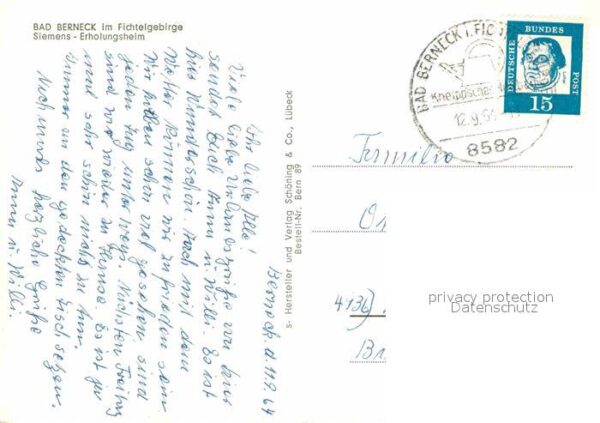 BAD BERNECK im Fichtelgebirge
Siemens - Erholungsheim
Berneck d. 11.9.64
Ihr lieben alle!
Viele liebe Urlaubsgrüße von hier
sendet Euch Anni u. Willi. Es ist
hier wunderschön. Auch mit dem
Wetter können wir zufrieden sein
Wir haben schon viel gesehen, sind
jeden Tag unterwegs. Nächsten Freitag
sind wir wieder zu Hause. Es ist ja
auch sehr schön nicht zu tun.
Immer an den gedeckten Tisch setzen.
Noch mals herzliche Grüße
Anni u. Willi.
s- Hersteller und Verlag Schöning & Co., Lübeck
Bestell-Nr. Bern 89
BAD BERNECK I. FICHT
Kneipp
12.9.64
8582
DEUTSCHE BUNDES POST
15
Familie
4136)
privacy protection
Datenschutz